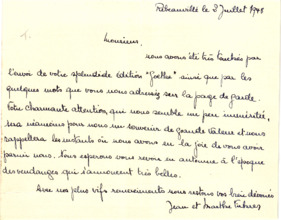 Ribeauvillé le 3 Juillet 1948
Monsieur,
nous avons été très touchés par
l'envoi de votre splendide édition "Goethe" ainsi que par les
quelques mots que vous nous adressez sur la page de garde.
Votre charmante attention, que nous semble un peu imméritée,
sera néanmoins pour nous un souvenir de grande valeur et nous
rappellera les instants où nous avons eu la joie de vous avoir
parmi nous. Nous espérons vous revoir en automne à l'époque
des vendanges qui s'annoncent très belles.
Avec nos plus vifs remerciements nous restons vos bien dévoués
Jean et Marthe